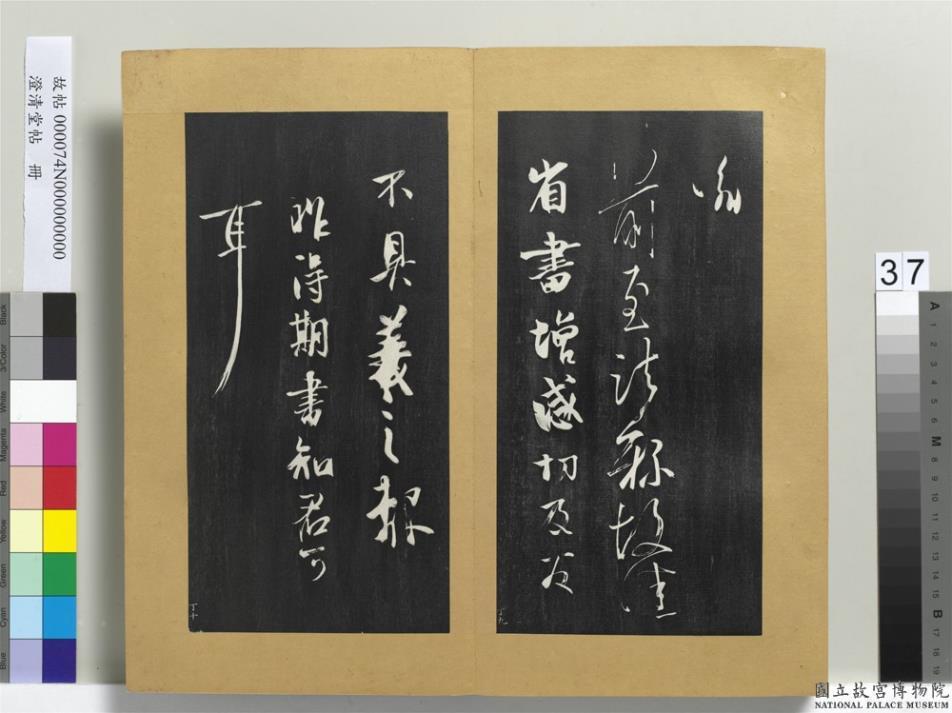 前至
故佳
省書增感切及
丁九
不具羲之報
昨得期書知君可
耳
丁十
故帖 000074N000000000
澄清堂帖 冊
37
Black
3/Color
White
Magenta
Red
Yellow
Green
Cyan
Blue
A
1
2
3
4
5
6
M
8
9
10
11
12
13
14
15
B
17
18
19
國立故宮博物院
NATIONAL PALACE MUSEUM